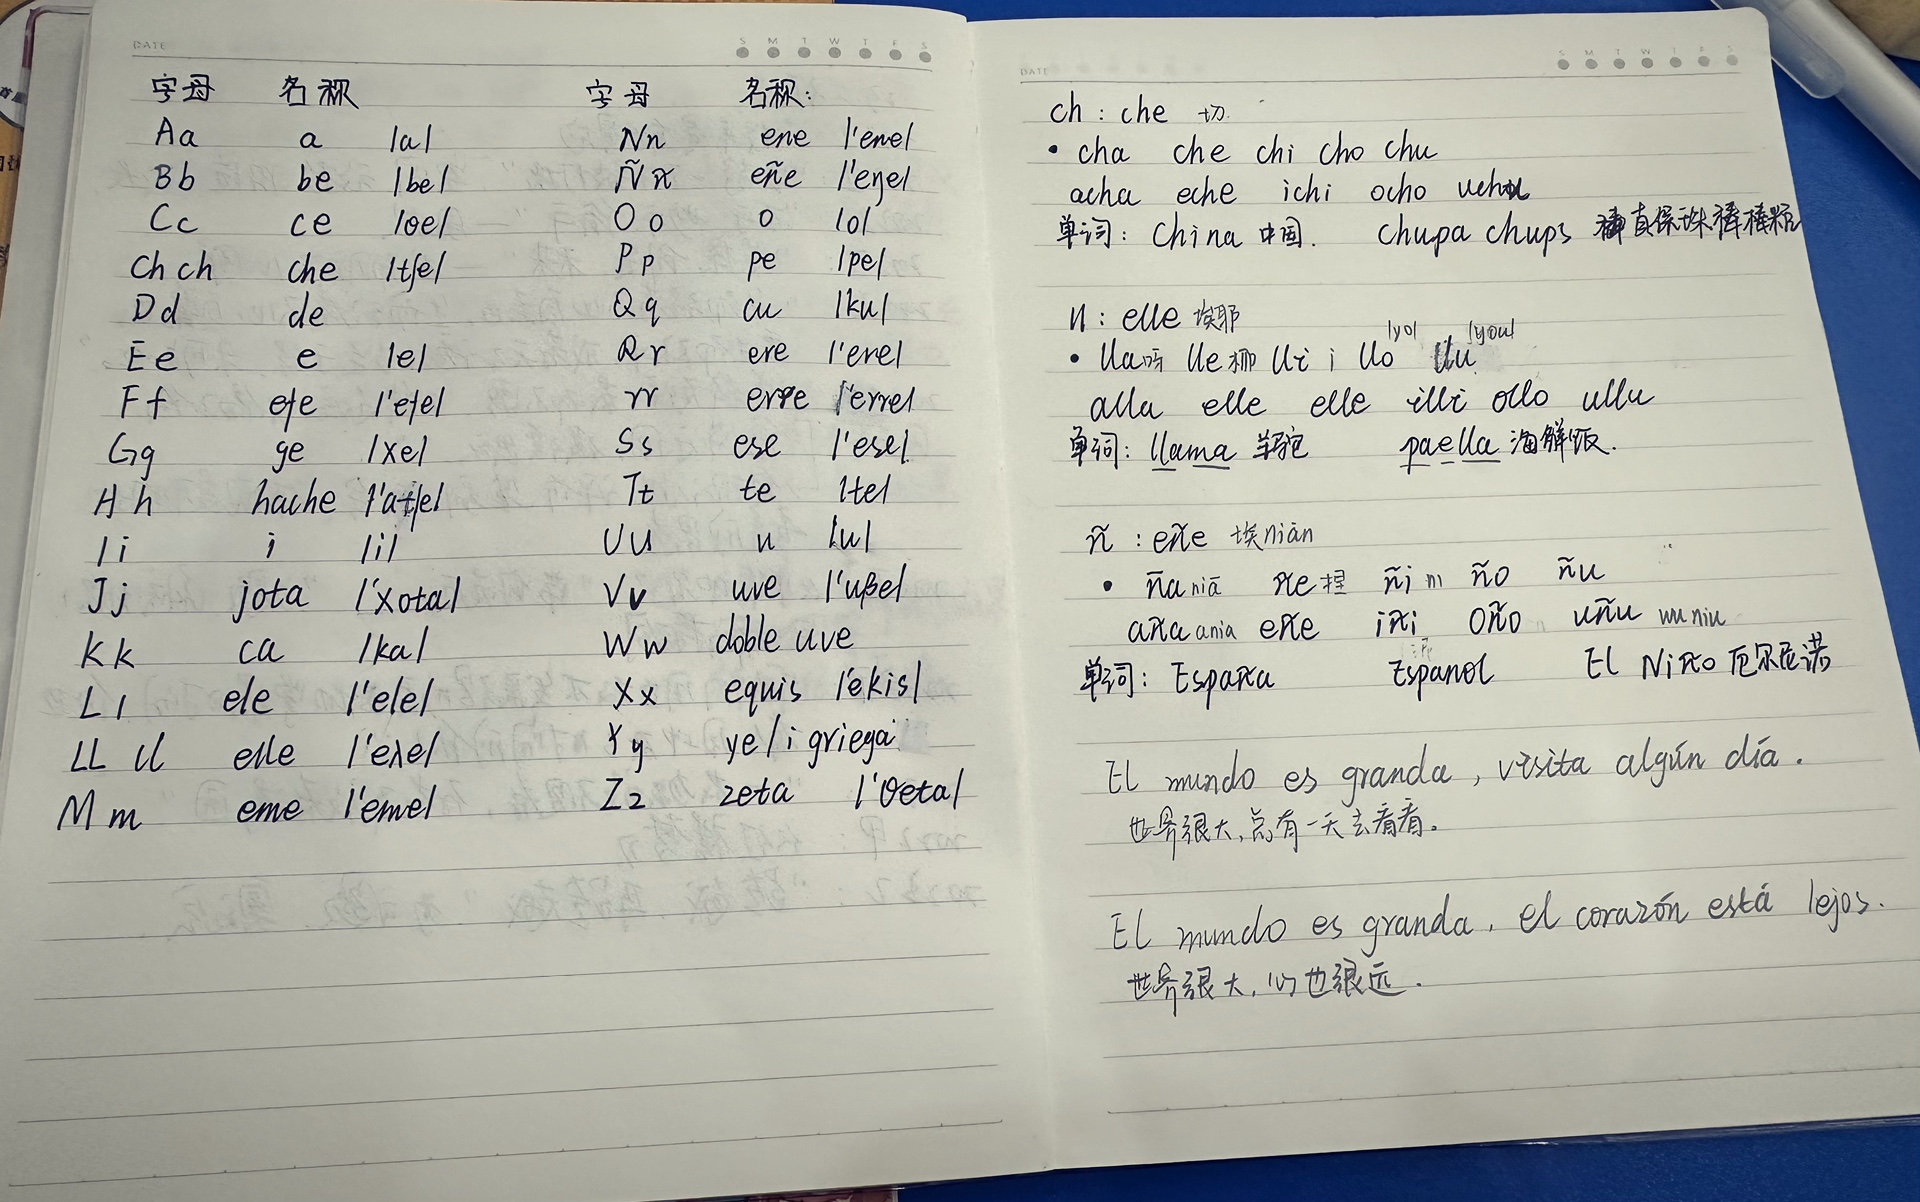 DATE
S M T W T F S
字母 名称 字母 名称:
Aa a /a/ Nn ene /'ene/
Bb be /be/ Ññ eñe /'eŋe/
Cc ce /θe/ Oo o /o/
Ch ch che /tʃe/ Pp pe /pe/
Dd de Qq cu /ku/
Ee e /e/ Rr ere /'ere/
Ff efe /'efe/ rr erre /'erre/
Gg ge /xe/ Ss ese /'ese/
Hh hache /'atʃe/ Tt te /te/
Ii i /i/ Uu u /u/
Jj jota /'xota/ Vv uve /'uβe/
Kk ca /ka/ Ww doble uve
Ll ele /'ele/ Xx equis /'ekis/
LL ll elle /'eλe/ Yy ye/i griega
Mm eme /'eme/ Zz zeta /'θeta/
DATE
S M T W T F S
ch : che 切
• cha che chi cho chu
acha eche ichi ocho uchu
单词: China 中国. Chupa chups 真保珠棒棒糖
ll : elle 埃耶
/yo/ /you/
• lla 呀 lle 椰 lli i llo llu
alla elle elle illi ollo ullu
单词: llama 羊驼 paella 海鲜饭.
ñ : eñe 埃niān
• ña niā ñe 捏 ñi ni ño ñu
aña ania eñe iñi oño uñu wu niu
单词: España Espanol El Niño 厄尔尼诺
El mundo es granda, visita algún día.
世界很大,总有一天去看看。
El mundo es granda, el corazón está lejos.
世界很大,心也很远.